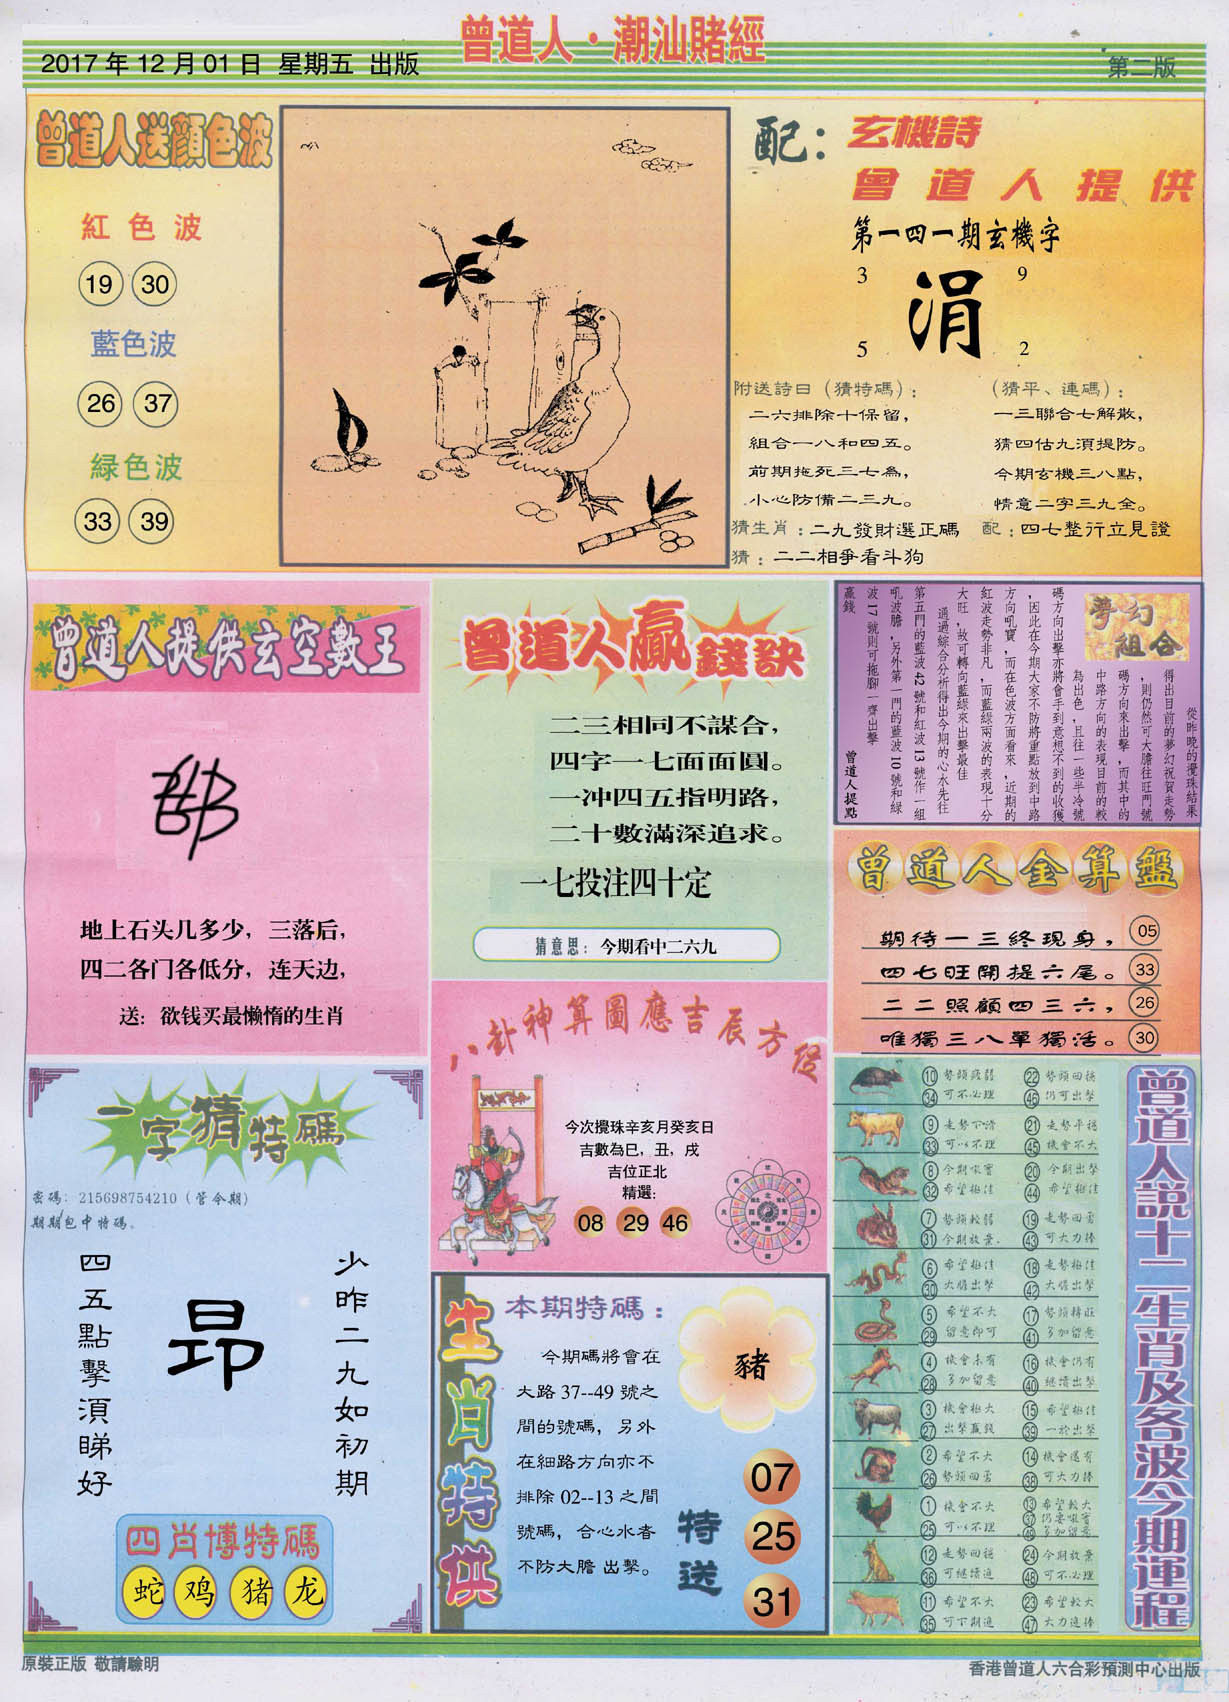 曾道人·潮汕賭經
2017年12月01日 星期五 出版
第二版
曾道人送顏色波
紅色波
19 30
藍色波
26 37
緑色波
33 39
配：玄機詩
曾道人提供
第一四一期玄機字
3 9
涓
5 2
附送詩曰（猜特碼）：
二六排除十保留，
組合一八和四五。
前期拖死三七為，
小心防備二三九。
（猜平、連碼）：
一三聯合七解散，
猜四估九須提防。
今期玄機三八點，
情意二字三九全。
猜生肖：二九發財選正碼 配：四七整行立見證
猜：二二相爭看斗狗
曾道人提供玄空數王
地上石头几多少，三落后，
四二各门各低分，连天边，
送：欲钱买最懒惰的生肖
曾道人贏錢訣
二三相同不謀合，
四字一七面面圓。
一冲四五指明路，
二十數滿深追求。
一七投注四十定
猜意思：今期看中二六九
夢幻組合
從昨晚的攪珠結果
得出目前的夢幻祝賀走勢
，則仍然可大膽往旺門號
碼方向來出擊，而其中的
中路方向的表現目前的較
為出色，且往一些半冷號
碼方向出擊亦將會手到意想不到的收獲
，因此在今期大家不防將重點放到中路
方向吼寶，而在色波方面看來，近期的
紅波走勢非凡，而藍綠兩波的表現十分
大旺，故可轉向藍綠來出擊最佳
通過綜合分析得出今期的心水先往
第五門的藍波42號和紅波13號作一組
吼波膽，另外第一門的藍波10號和綠
波17號則可拖腳一齊出擊
贏錢
曾道人提點
曾道人金算盤
期待一三終現身， 05
四七旺開提六尾。 33
二二照顧四三六， 26
唯獨三八單獨活。 30
八卦神算圖應吉辰方位
今次攪珠辛亥月癸亥日
吉數為巳，丑，戌
吉位正北
精選：
08 29 46
一字猜特碼
密碼：215698754210（管今期）
期期包中特碼。
少昨二九如初期
昂
四五點擊須睇好
四肖博特碼
蛇 鸡 猪 龙
生肖特供
本期特碼：
今期碼將會在
大路37--49號之
間的號碼，另外
在細路方向亦不
排除02--13之間
號碼，合心水者
不防大膽出擊。
豬
特送
07
25
31
曾道人説十二生肖及各波今期運程
10 勢頭疲弱 22 勢頭回穩
34 可不必理 46 仍可出擊
9 走勢下滑 21 走勢平穩
33 可以不理 45 機會不大
8 今期吼寶 20 今期出擊
32 希望極佳 44 希望極佳
7 勢頭較弱 19 走勢回勇
31 今期放棄 43 可大力捧
6 希望極佳 18 走勢極佳
30 大膽出擊 42 大膽出擊
5 希望不大 17 勢頭轉旺
29 留意即可 41 多加留意
4 機會未有 16 機會仍有
28 多加留意 40 繼續出擊
3 機會極大 15 希望極佳
27 出擊贏錢 39 一於出擊
2 希望不大 14 機會還有
26 勢頭回勇 38 可大力捧
1 機會不大 13 希望較大
37 仍要吼實
25 可以不理 49 多加留意
12 走勢回穩 24 今期放棄
36 可繼續追 48 可不必理
11 希望不大 23 希望較大
35 可下期追 47 大力追捧
原裝正版 敬請驗明
香港曾道人六合彩預測中心出版